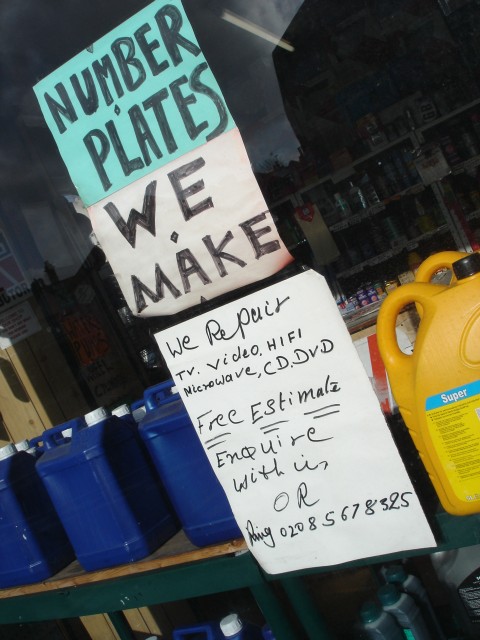 NUMBER
PLATES
WE
MAKE
We Repair
TV. Video, HIFI
Microwave, CD.DVD
Free Estimate
Enquire
With us
OR
Ring 02085678325
Super